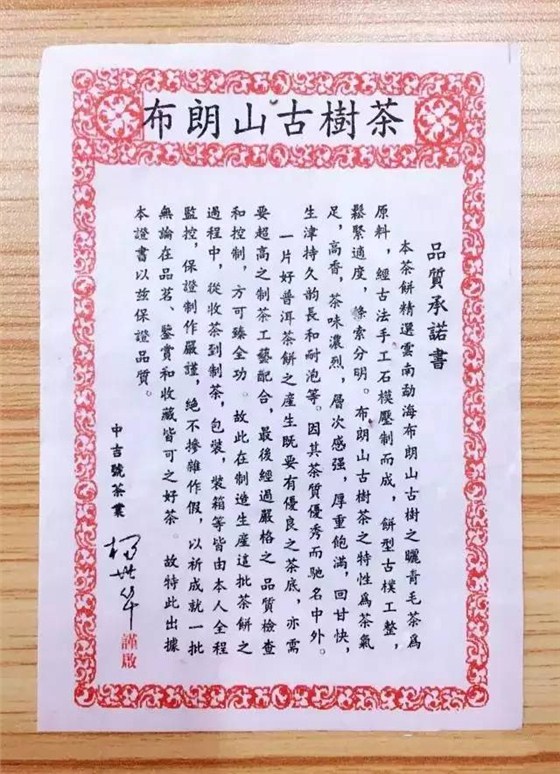 布朗山古樹茶
品質承諾書
本茶餅精選雲南勐海布朗山古樹之曬青毛茶爲
原料，經古法手工石模壓制而成，餅型古樸工整，
鬆緊適度，條索分明。布朗山古樹茶之特性爲茶氣
足，高香，茶味濃烈，層次感强，厚重飽滿，回甘快，
生津持久韵長和耐泡等。因其茶質優秀而馳名中外。
一片好普洱茶餅之産生既要有優良之茶底，亦需
要超高之制茶工藝配合，最後經過嚴格之品質檢查
和控制，方可臻全功。故此在制造生産這批茶餅之
過程中，從收茶到制茶，包裝，裝箱等皆由本人全程
監控，保證制作嚴謹，絶不摻雜作假，以祈成就一批
無論在品茗、鑒賞和收藏皆可之好茶。故特此出據
本證書以兹保證品質。
中吉號茶業
杨世华 謹啟